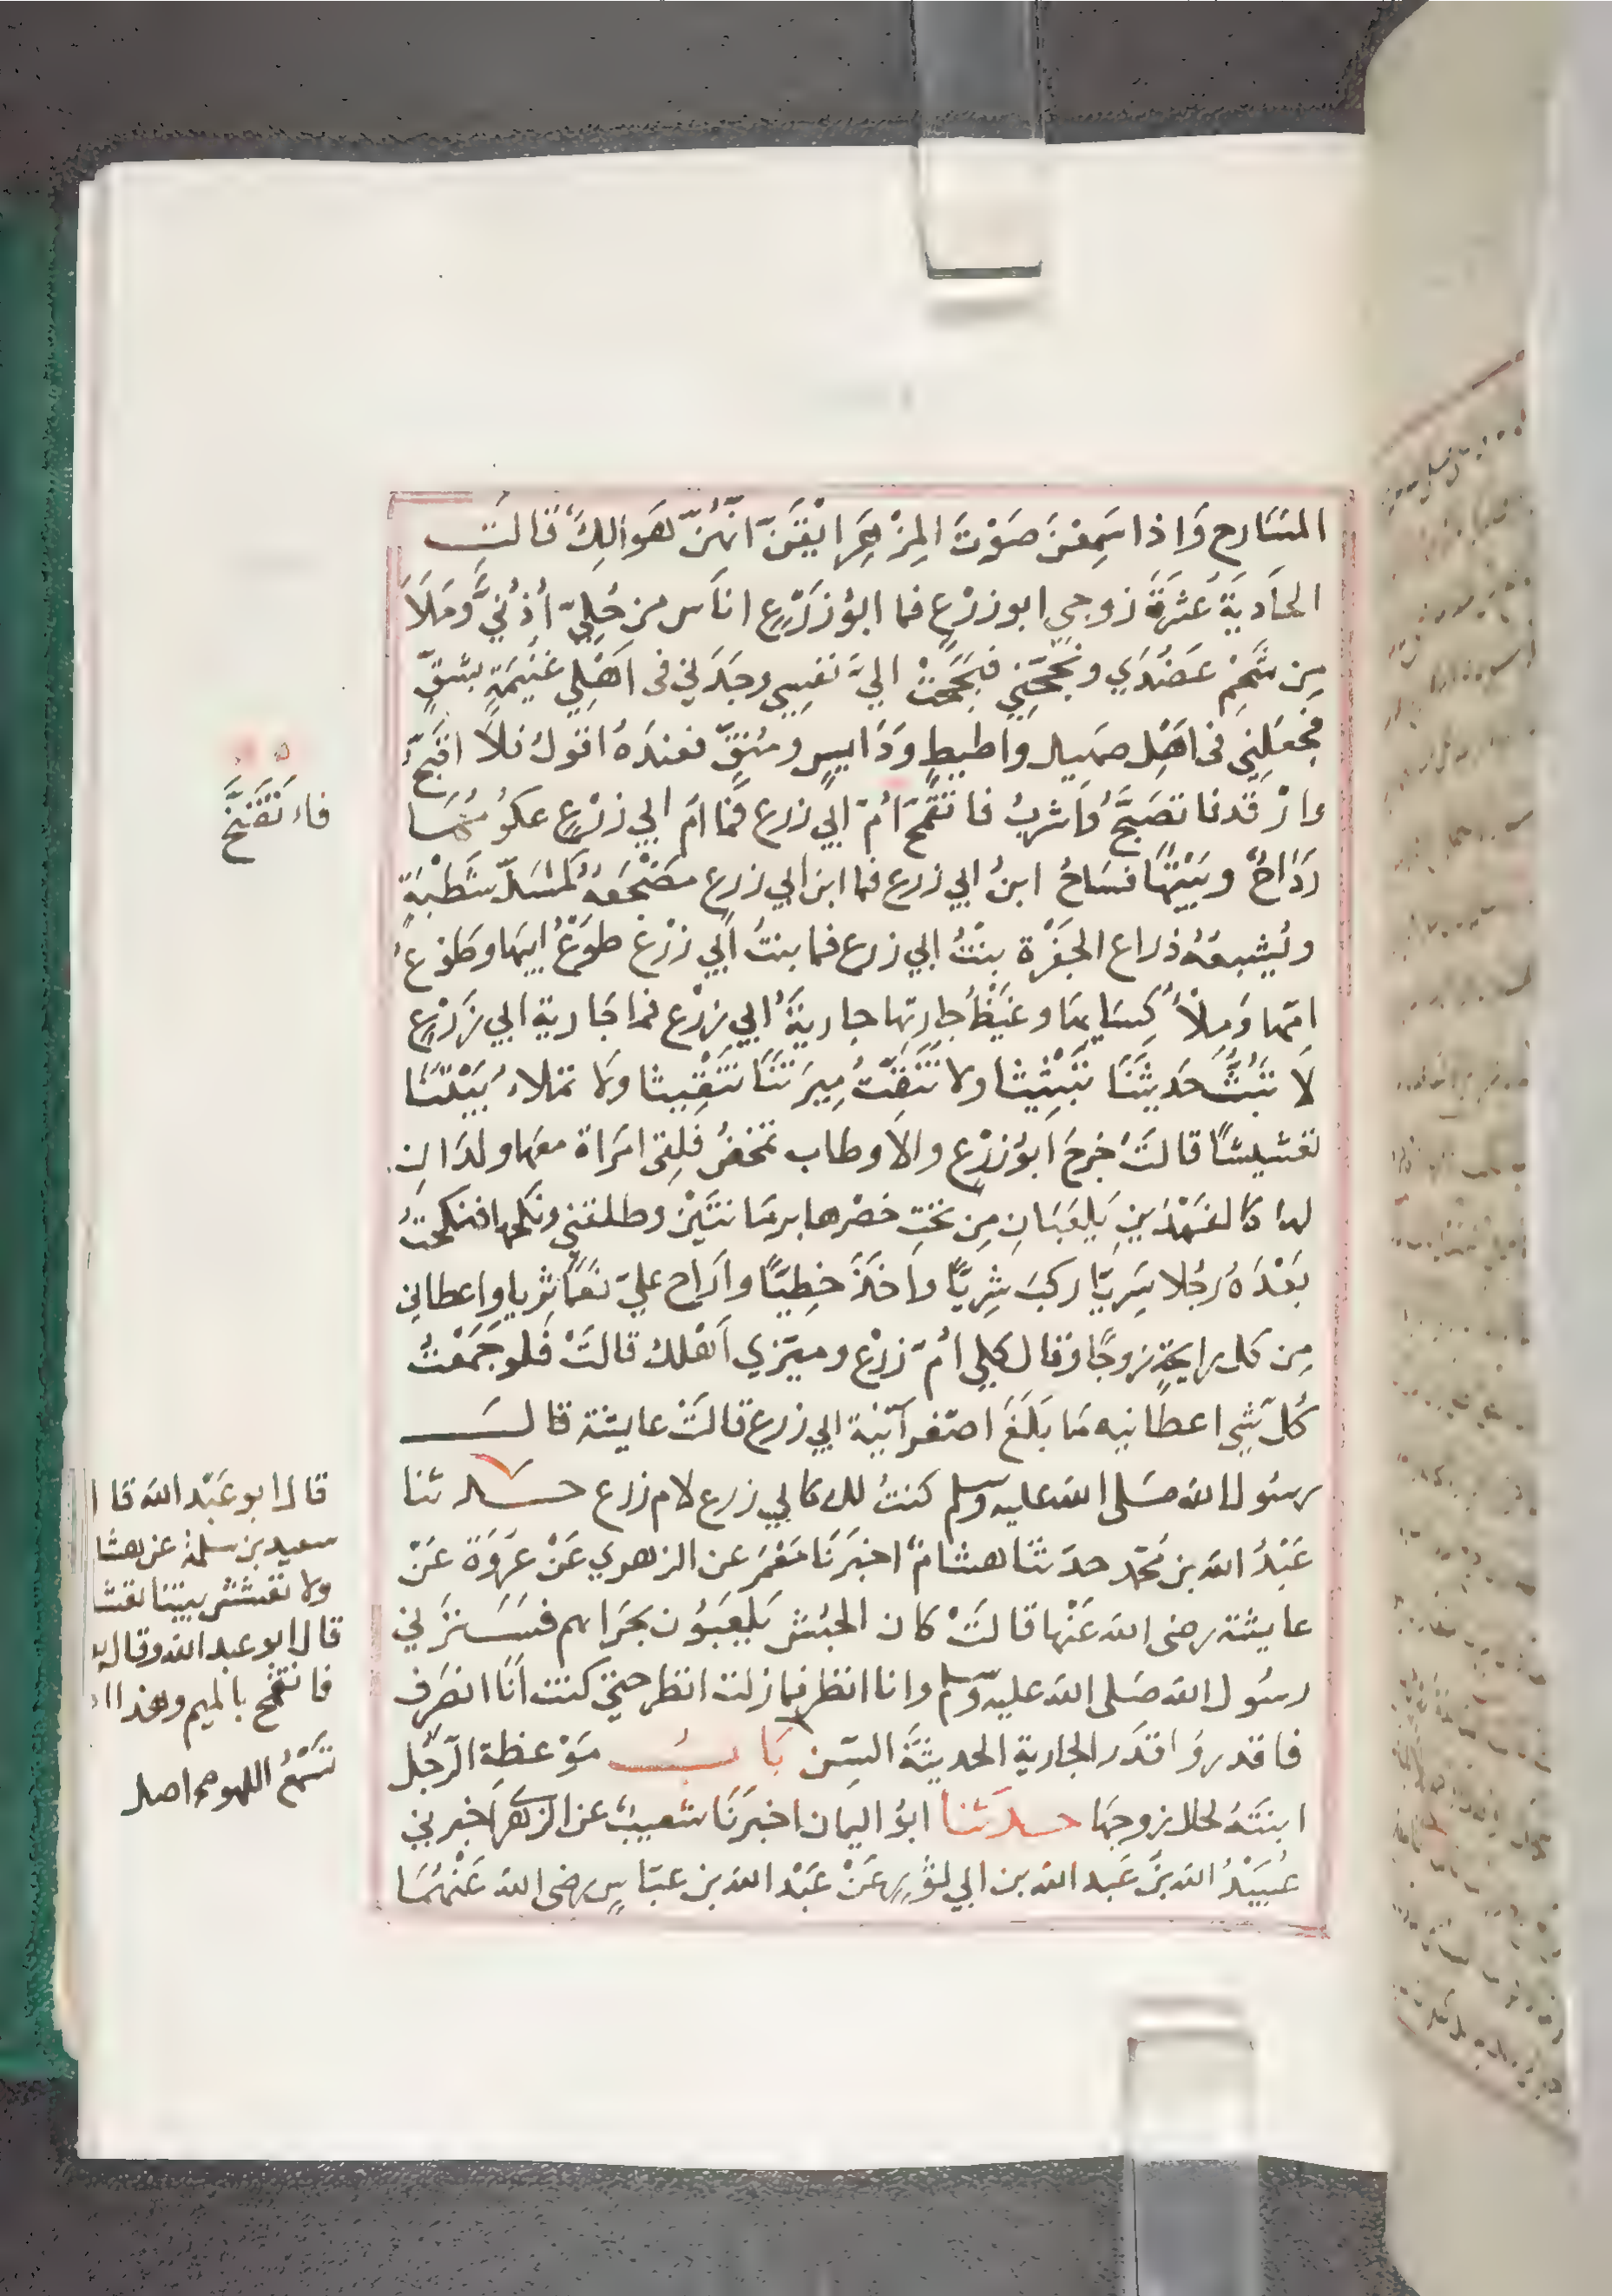 المسَارح وَاذا سَمِعْنَ صَوْتَ المِزْهَرِ ايْقَنَّ انّهُنّ هَوالِكُ قَالَت
الحَادِيَةَ عَشرَةَ زوجي ابو زرْعٍ فما ابوُ زَرْعٍ اناَسَ من حُليّ اُذُنيَّ وَمَلَاَ
مِن شَحْمٍ عَضُدَي وبجحَني فبَجَحَتْ اليَّ نَفسِي وجَدَني في اَهْلِ غُنَيمَةٍ بشقٍّ
فجعَلِني في اَهْلِ صهيل واطيطٍ وَدَايسٍ ومُنَقٍّ فعندَهُ اقولُ فلاَ اقبَّحُ
وارْقد فاتصَبَّحُ وَاَشربُ فاتقَمَّحُ اُمّ ابي زرع فمَا امّ ابي زرْعٍ عكوُمُهَا
رَدَاحٌ وبَيْتُهَا فسَاحُ ابنُ ابي زرع فما ابن ابي زرع مضْجَعهُ كمَسَلّ شَطْبَةٍ
ويُشبعُهُ ذراع الجَفْرَة بنْتُ ابي زرع فما بنتُ اَبي زرْع طَوْعُ ابيهَا وَطَوْع
امّها وَملْأُ كِسَايهَا وغَيْظُ جارتِها جاريَةُ ابي زرْع فما جَارية ابي زَرْعٍ
لاَ تبُثُّ حَديثَنَا تبْثِيثا ولا تنَقِّثُ مِيرَتنَا تنَقِيثا ولا تملاءُ بَيْتنَا
تعْشيشًا قالتَ خرجَ ابوُ زرْعٍ والاَوطاب تمخضُ فلقي امرَاة معَها ولدَان
لها كالفهْدَينِ يَلعَبَانِ مِن تحْتِ خصْرها برمّانتَيْن وطلقني ونكحها فنكحْتُ
بَعْدَهُ رَجُلا سَرِيّا ركبَ شرِيًّا واخَذَ خطِيًّا وارَاح عليّ نعَمًا ثريا واعطاني
مِن كل رايحةٍ زوجًا وقال كلي اُمّ زرْع وميري اَهْلك قالَتْ فَلو جَمَعْتُ
كُلّ شَيْ اعطانيه مَا بَلَغَ اصغر آنيَة ابي زرع قالَتْ عايشة قالَ
رسُول الله صَلى الله عليه وسلم كنتُ لك كابي زرع لام زرع حدثنا
عَبْدُ الله بن محمّد حدثنا هشامٌ اخبرَنَا مَعْمَر عن الزهوي عَنْ عرْوَةَ عَنْ
عايشة رضى الله عَنْها قالَتْ كان الحبُش يَلعَبوُن بحرَابهم فسَتَرَني
رسُول الله صَلى الله عليه وسلم وانا انظر فما زلت انظر حتى كنت اَنَا انصَرف
فاقدرُوا قدْر الجارية الحديثَة السِّن بَابُ مَوْعظة الرّجُل
ابنتَهُ لحال زوجهَا حدَثنا ابوُ اليمان اخبَرنَا شعيبٌ عن الزهرى اخبرني
عُبيَدُ الله بنُ عَبد الله بن ابي ثوْرٍ عَنْ عَبْد الله بن عبّاسٍ رضى الله عَنْهُمَا
فاء تَقَنَّحُ
قال ابو عَبْد الله قا
سعيد بن سلمة عن هشا
ولا تعشش بيتنا تعشـ
قال ابو عبد الله وقال
فاتقمح بالميم وهذا
تَسْمَعُ اللهو صح اصل